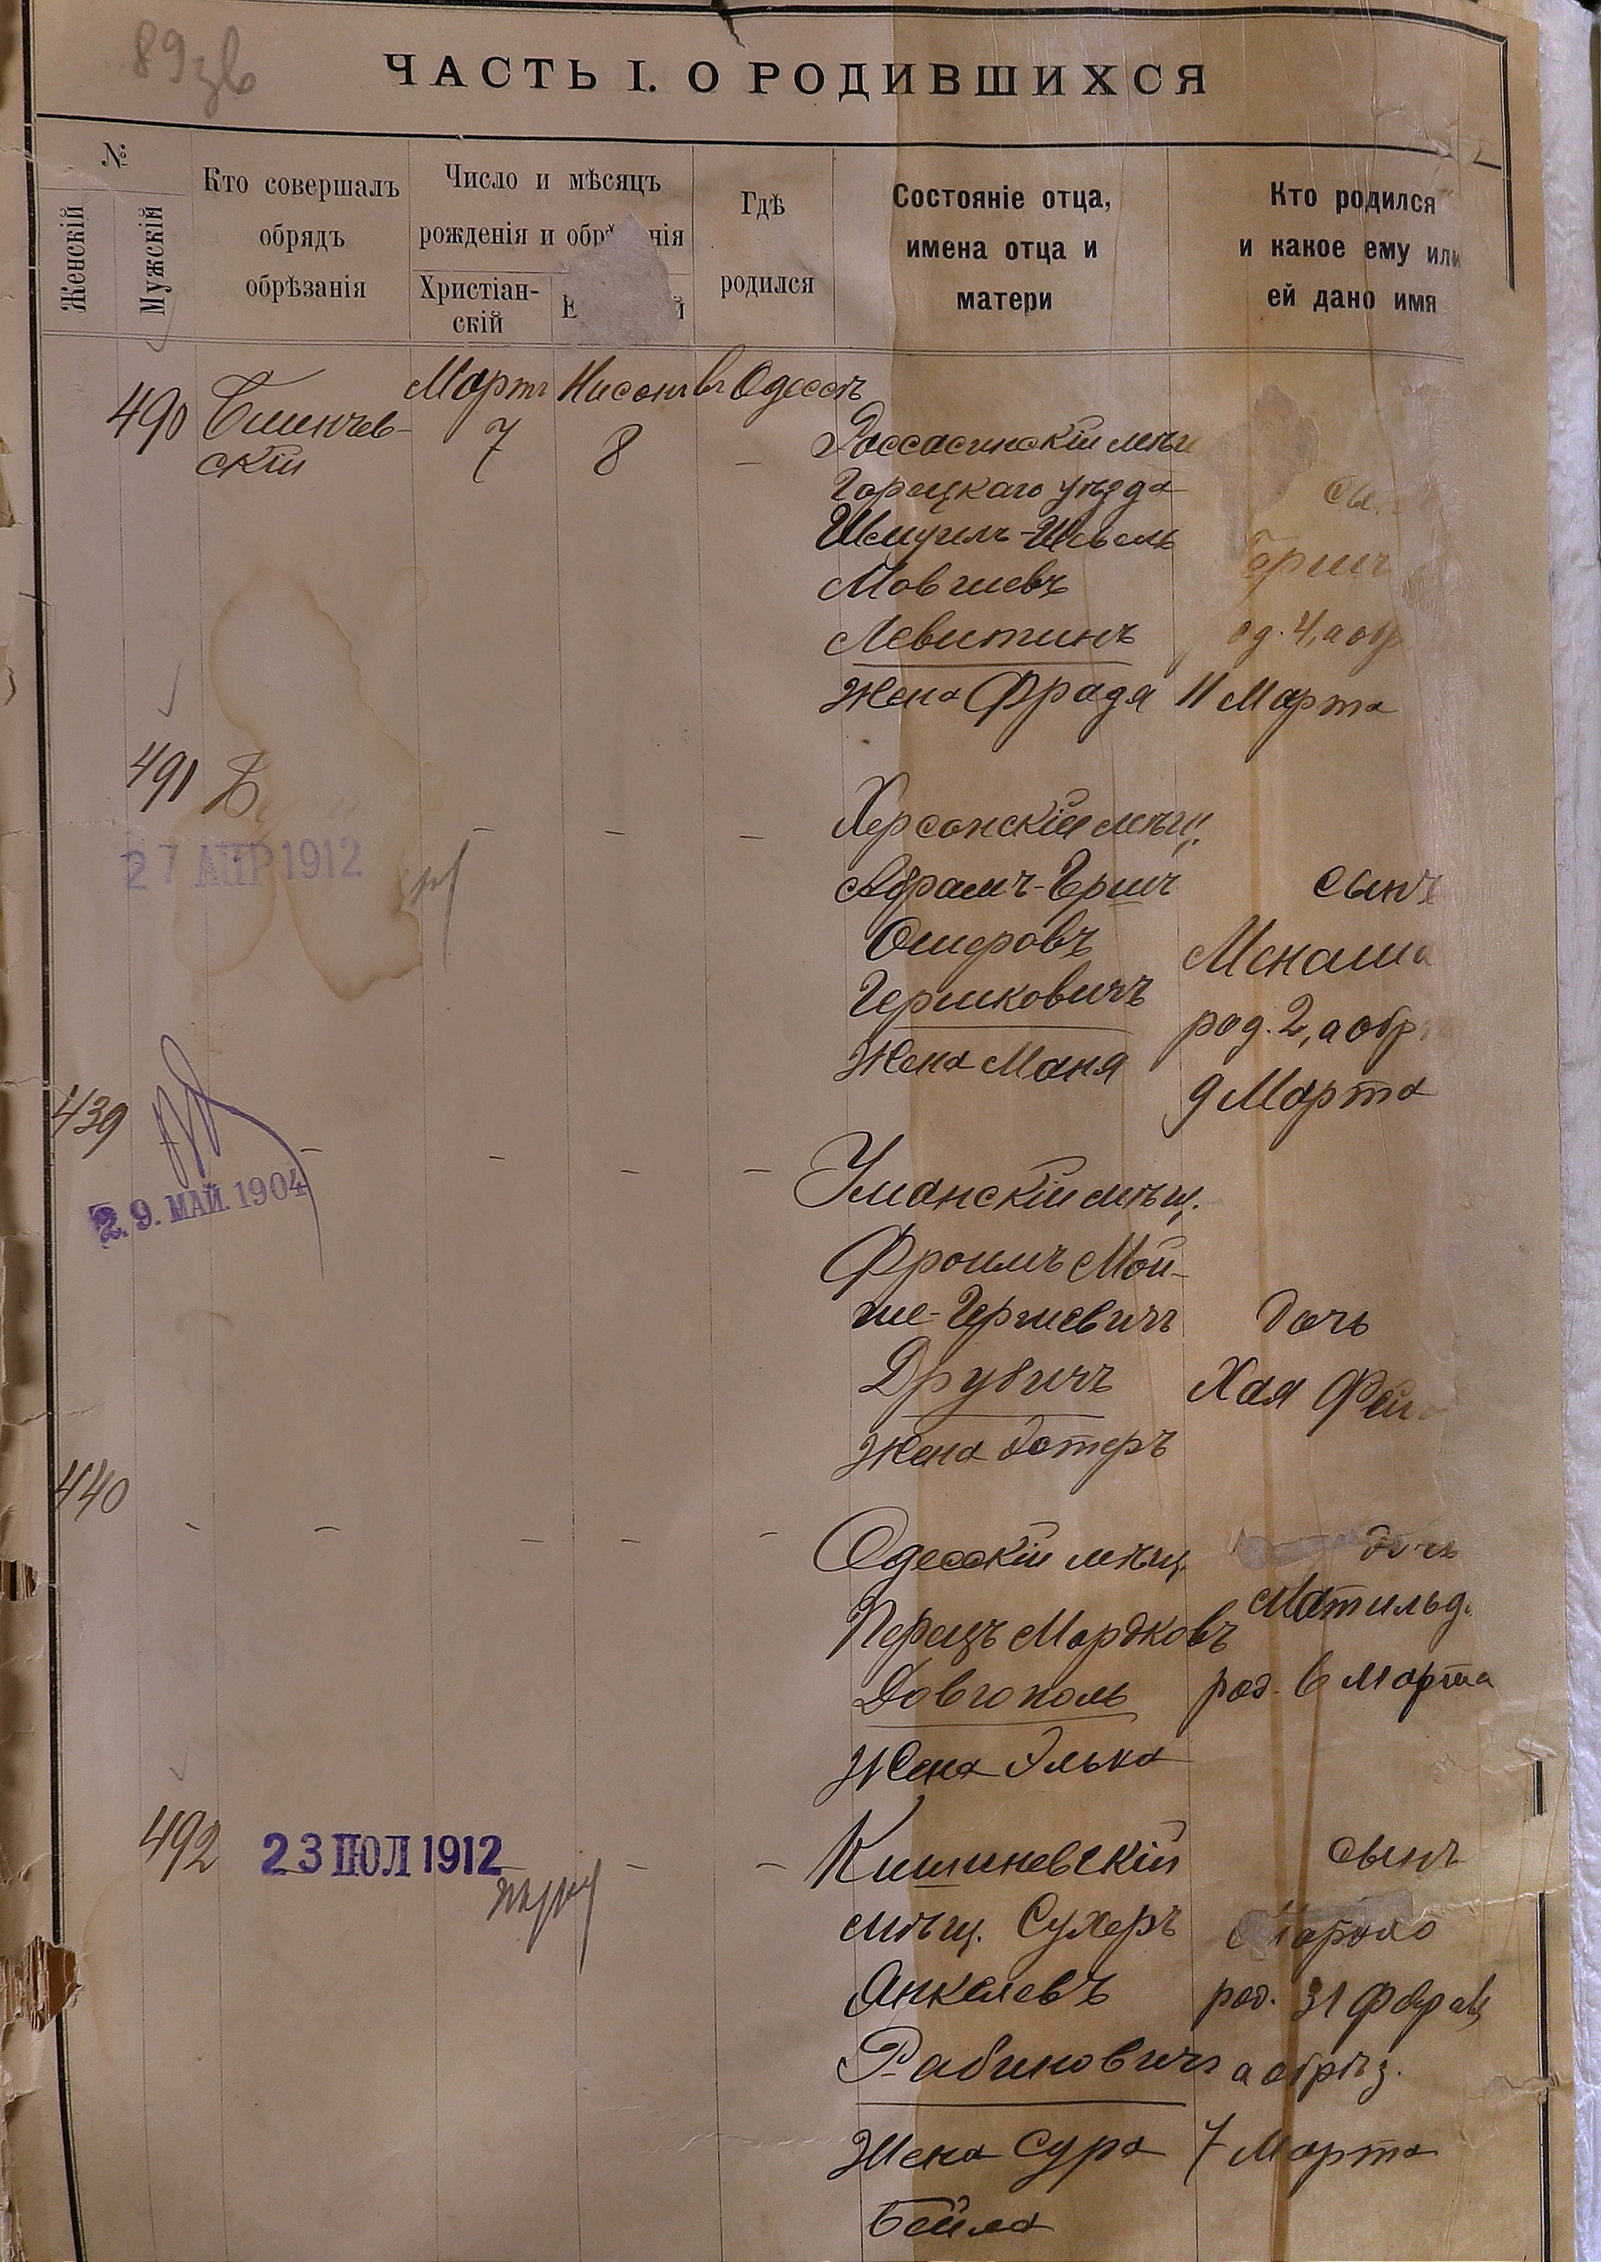 89 зв
ЧАСТЬ I. О РОДИВШИХСЯ
№
Женскій
Мужскій
Кто совершалъ
обрядъ
обрѣзанія
Число и мѣсяцъ
рожденія и
Христіан-
скій
Гдѣ
родился
Состояніе отца,
имена отца и
матери
Кто родился
и какое ему или
ей дано имя
Мартъ Нисонъ въ Одессѣ
490
скій
7
8
–
Россасинскій мѣщ
Горецкаго уѣзда
Шмуилъ-Шевель
Мовшевъ
Левитинъ
Жена Фрадя
од. 4, а обр
11 Марта
491
27 АПР 1912
– – –
Херсонскій мѣщ.
Абрамъ-Герш
Ошеровъ
Гершковичъ
Жена Маня
сынъ
Менаша
род. 2, а обр
9 Марта
439
29. МАЙ. 1904
– – – –
Уманскій мѣщ.
Фроимъ Мой-
ше-Гершевичъ
Друбичъ
Жена Эстеръ
дочь
Хая
440
– – – – –
Одесскій мѣщ.
Перецъ Мордковъ
Довгополь
Жена Элька
дочь
Матильд
род. 6 Марта
492
23 ІЮЛ 1912
– –
Кишиневскій
мѣщ. Сухеръ
Янкелевъ
Рабиновичъ
Жена Сура
Бейла
сынъ
род.
а обрѣз.
7 Марта